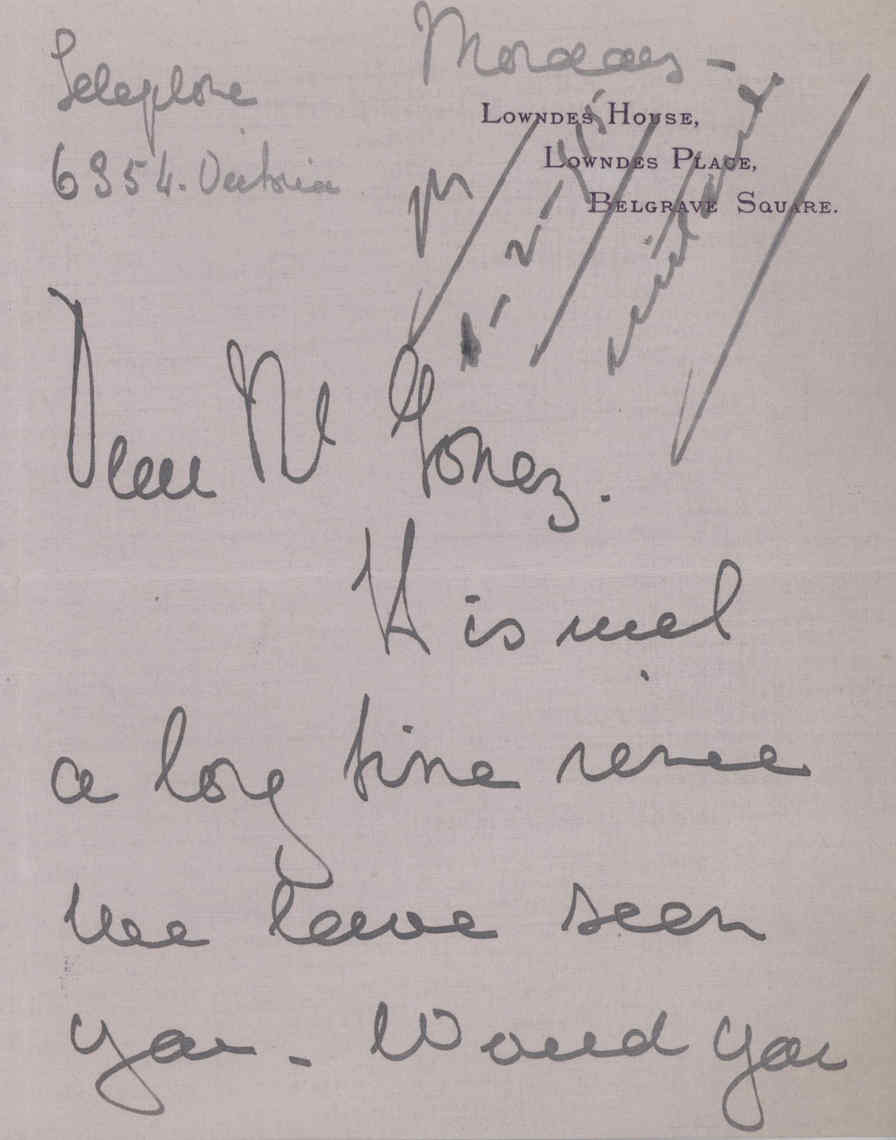 Monday -
Telephone
6954. Victoria
LOWNDES HOUSE,
LOWNDES PLACE,
BELGRAVE SQUARE.
1-2-15
Dear Mr
It is such
a long time since
we have seen
you - Would you